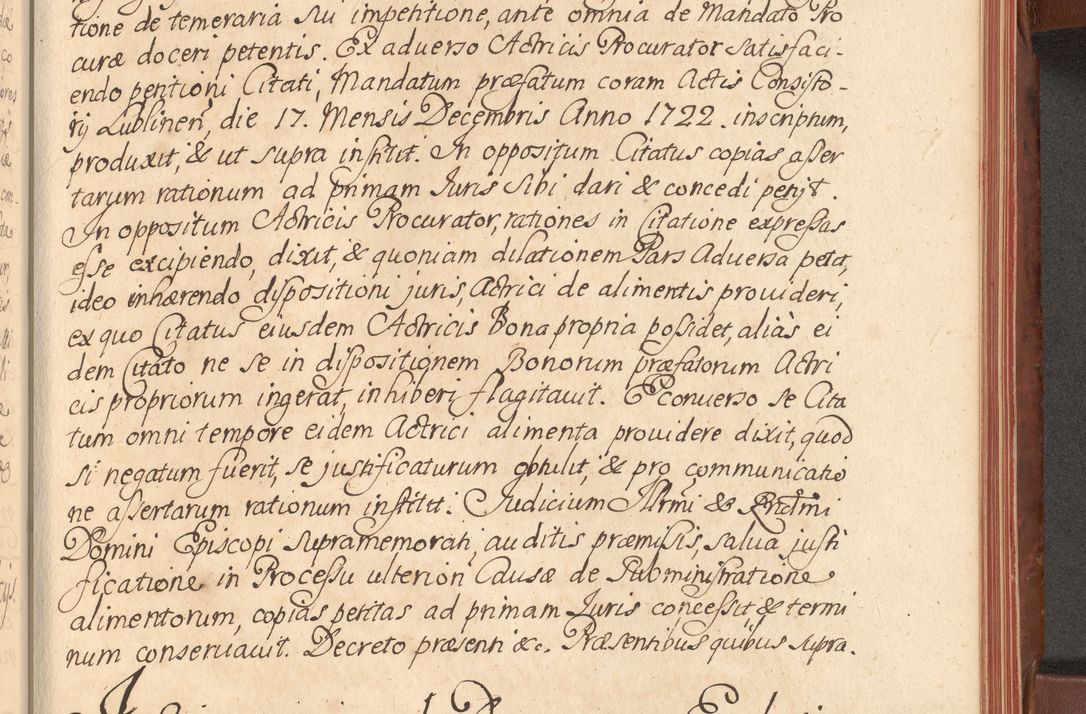 tione de temeraria sui impetitione, ante omnia de Mandato Pro
curæ doceri petentis. Ex adverso Actricis Procurator satisfaci-
endo petitioni Citati, Mandatum præfatum coram Actis Consisto-
rij Lublinen, die 17. Mensis Decembris Anno 1722. inscriptum,
produxit, & ut supra institit. In oppositum Citatus copias asser
tarum rationum ad primam Juris sibi dari & concedi petijt.
In oppositum Actricis Procurator, rationes in Citatione expressas
esse excipiendo, dixit, & quoniam dilationem Pars Adversa petit,
ideo inhærendo dispositioni juris, Actrici de alimentis provideri,
ex quo Citatus eiusdem Actricis Bona propria possidet, aliàs ei
dem Citato ne se in dispositionem Bonorum præfatorum Actri
cis propriorum ingerat, inhiberi flagitavit. E converso se Cita
tum omni tempore eidem Actrici alimenta providere dixit, quod
si negatum fuerit, se justificaturum obtulit, & pro communicatio
ne assertarum rationum institit. Judicium Illrmi & Rndmi
Domini Episcopi supramemorati, auditis præmissis, salva justi
ficatione in Processu ulteriori Causæ de subministratione
alimentorum, copias petitas ad primam Juris concessit & termi
num conservavit. Decreto præsenti &c. Præsentibus quibus supra.